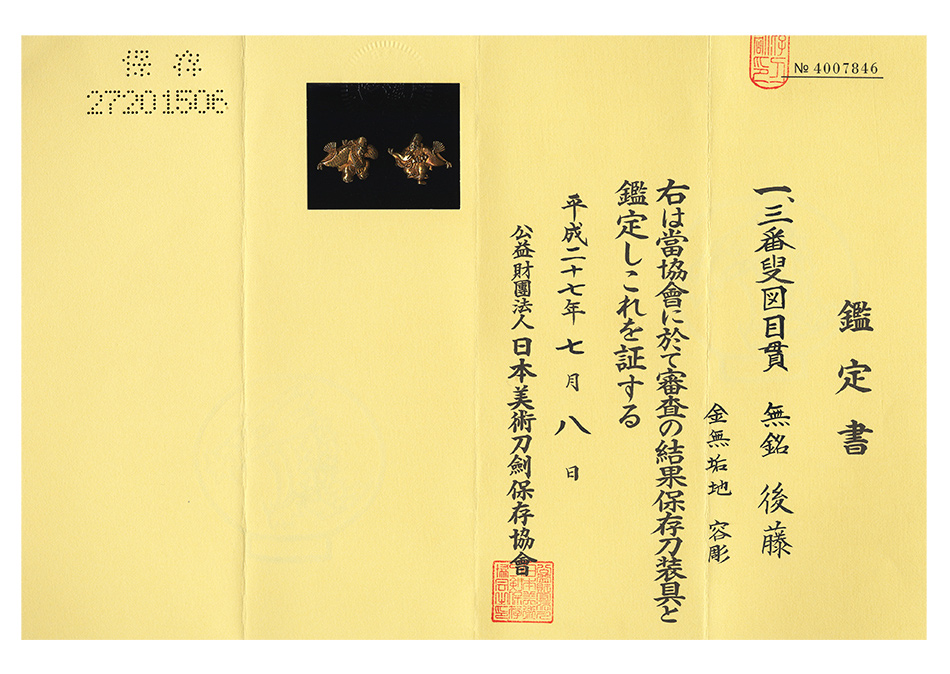 鑑定書
№ 4007846
一、三番叟図目貫 無銘 後藤
金無垢地 容彫
右は當協會に於て審査の結果保存刀装具と
鑑定しこれを証する
平成二十七年七月八日
公益財團法人 日本美術刀劍保存協會
保存
27201506